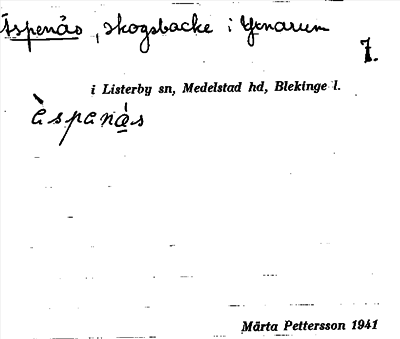 Aspenås, skogsbacke i Gunarum
7.
i Listerby sn, Medelstad hd, Blekinge l.
àspená̱s
Märta Pettersson 1941